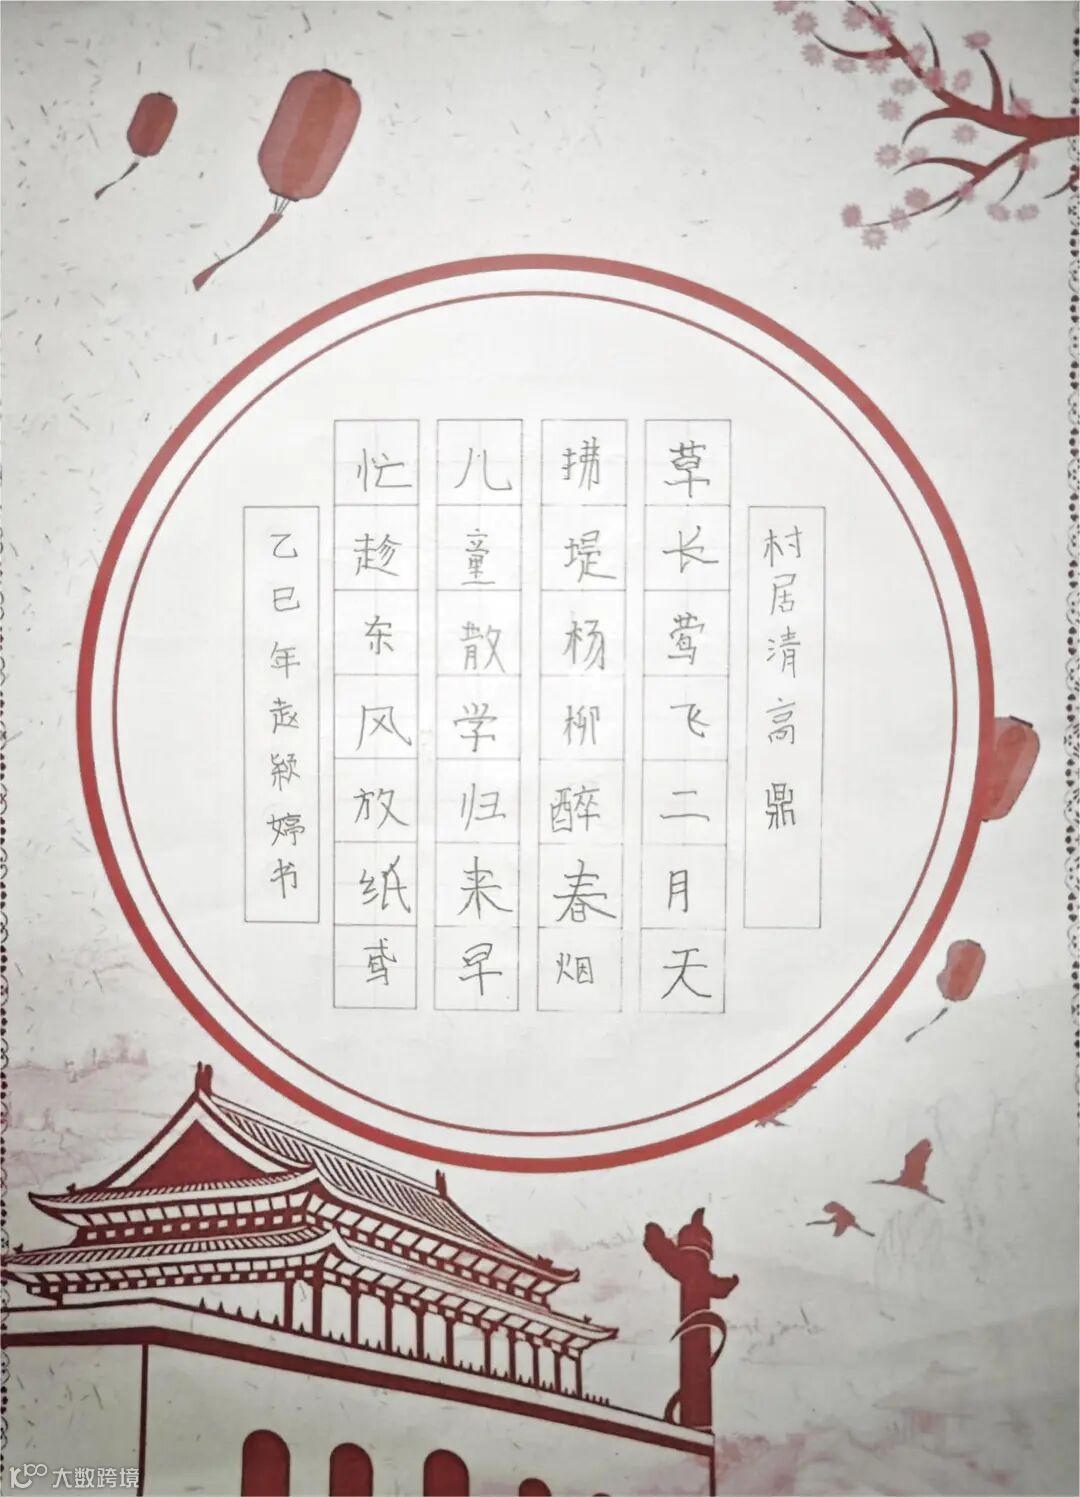 村居清高鼎
草长莺飞二月天
拂堤杨柳醉春烟
儿童散学归来早
忙趁东风放纸鸢
乙巳年赵颖婷书
大数跨境